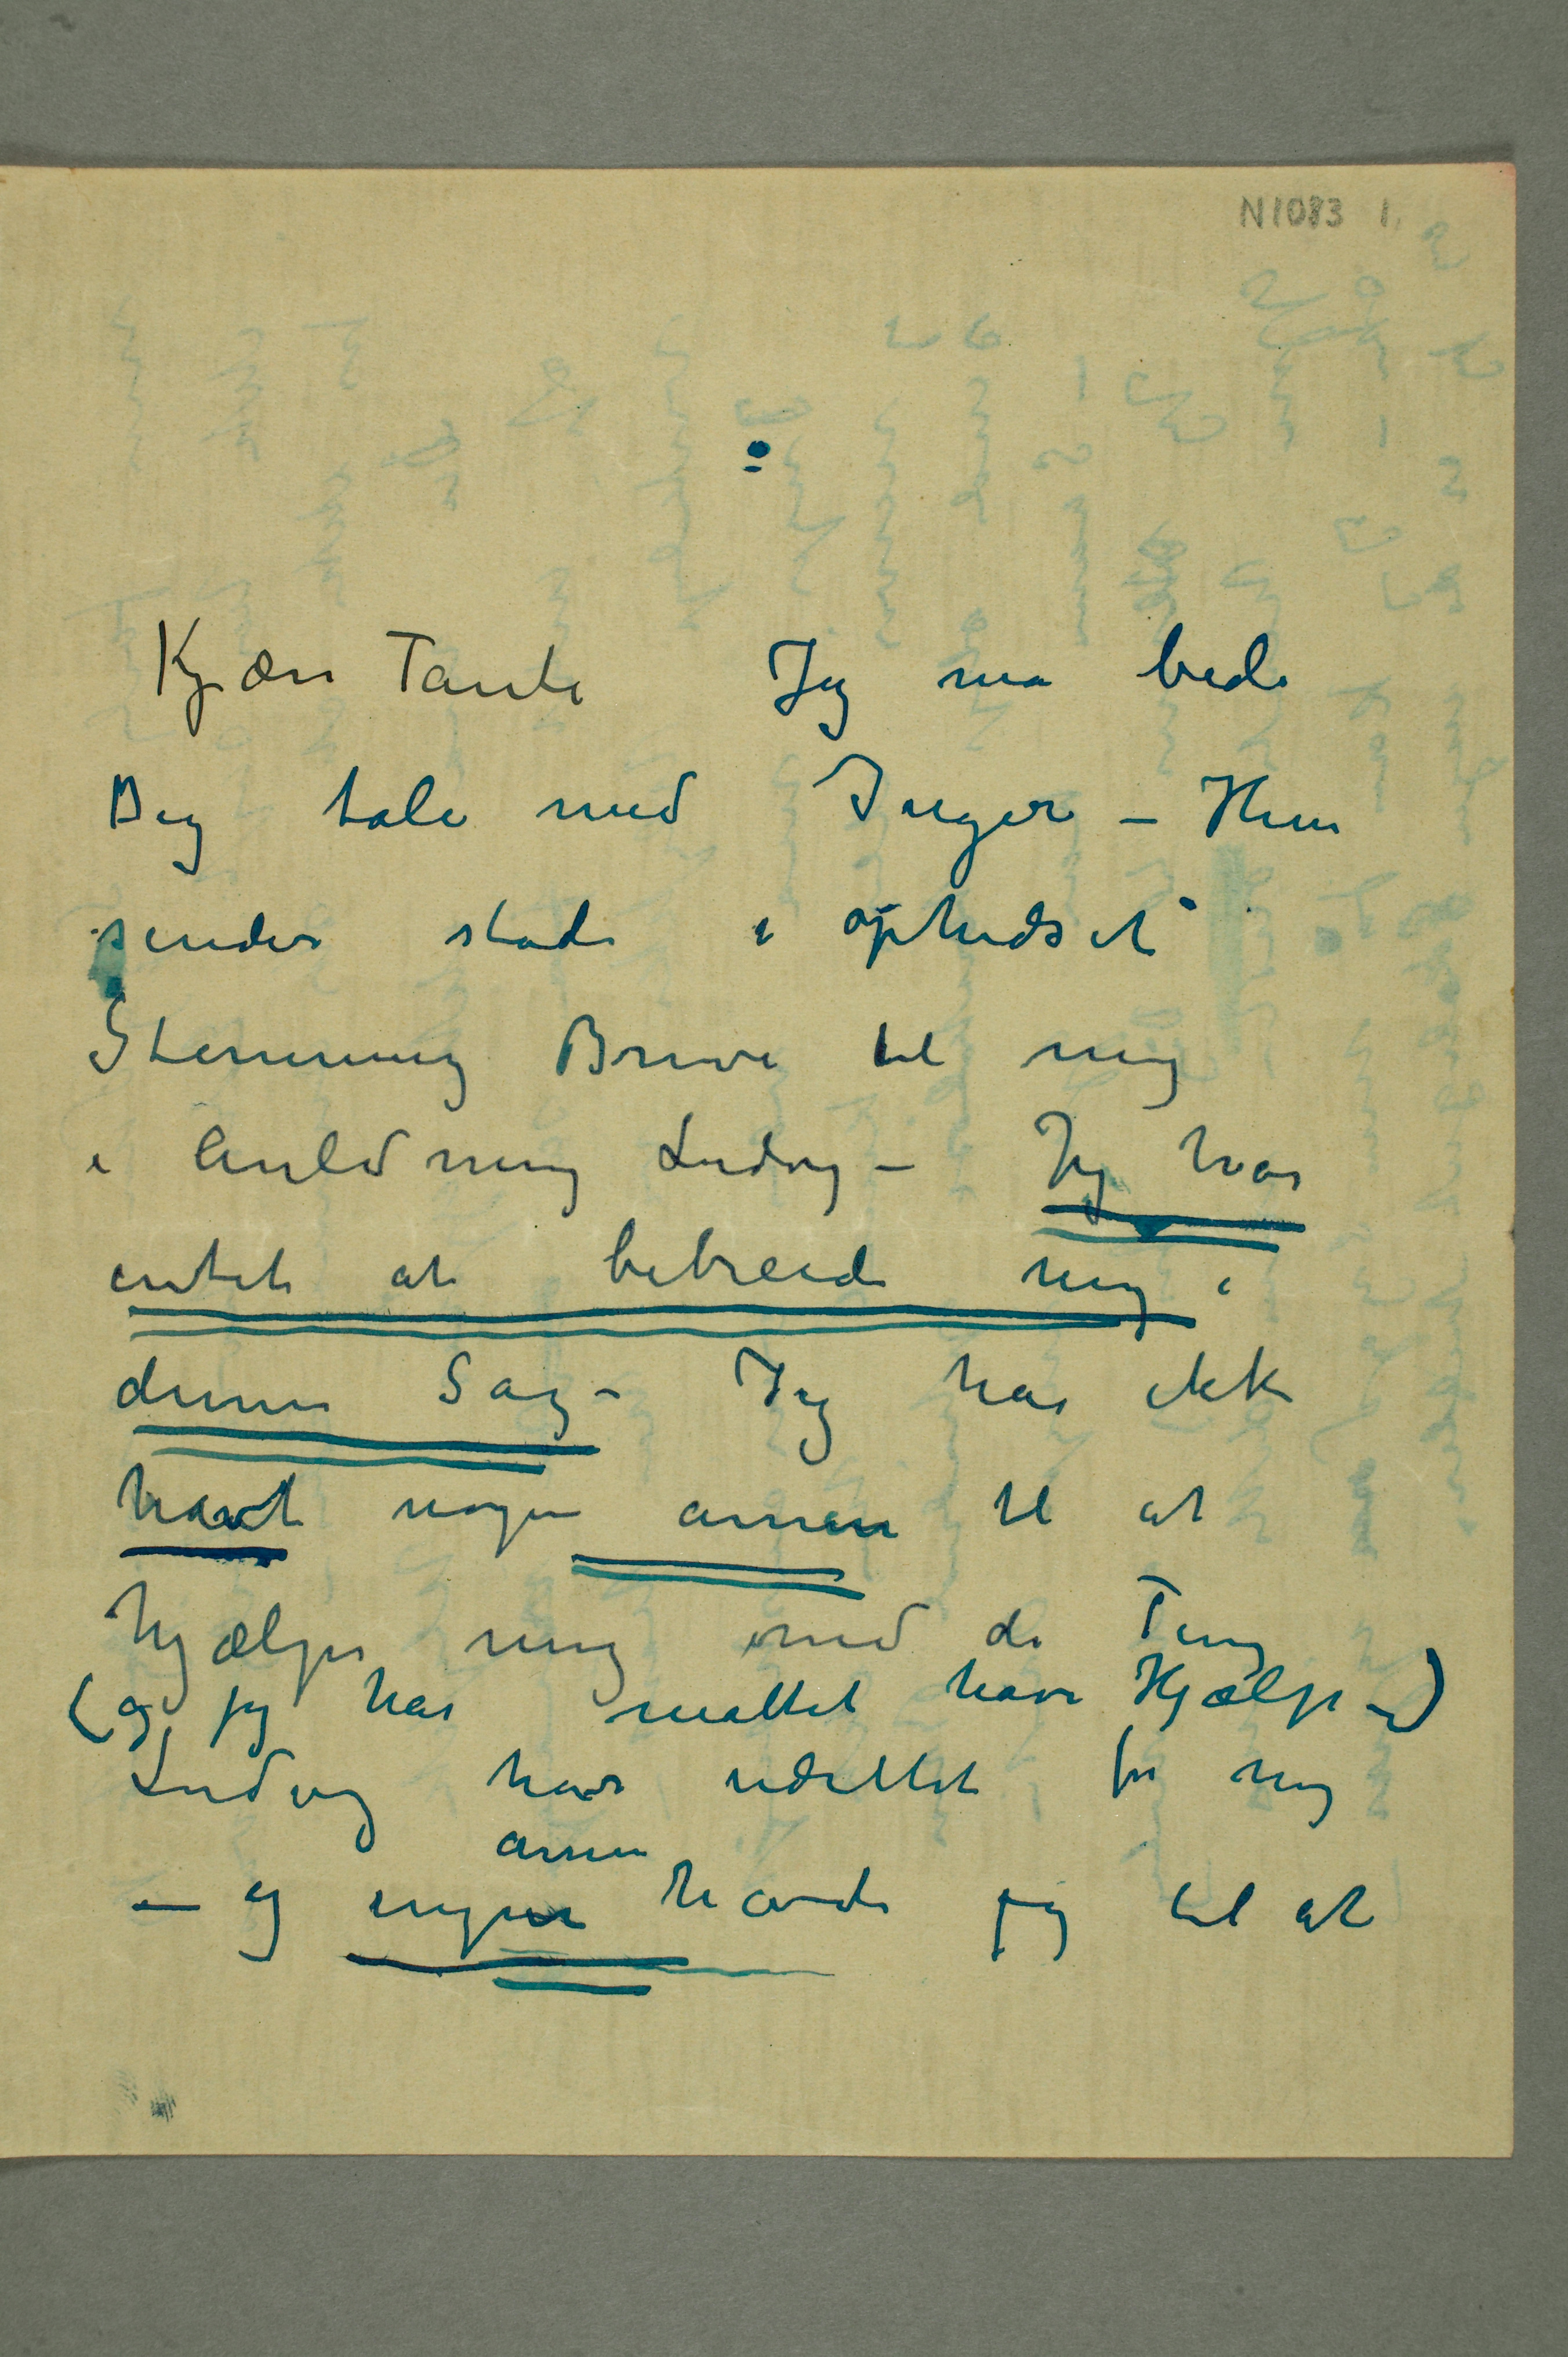 N1083 1
Kjære Tante Jeg må bede
Dig tale med Inger – Hun
sender stadi i ophidset
Stemning Breve til mig
i Anledning Ludvig – Jeg har
intet at bebreide mig i
denne Sag – Jeg har ikke
havt nogen annen til at
hjælpe mig med de Ting
(og jeg har måttet have Hjælp –)
Ludvig har udrettet for mig
annen
– og ingen havde jeg til at